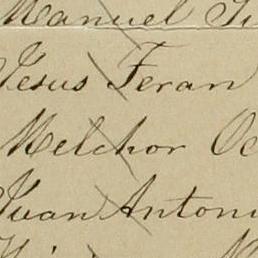 Manuel
Jesus Teran
Melchor Oc
Juan Antoni